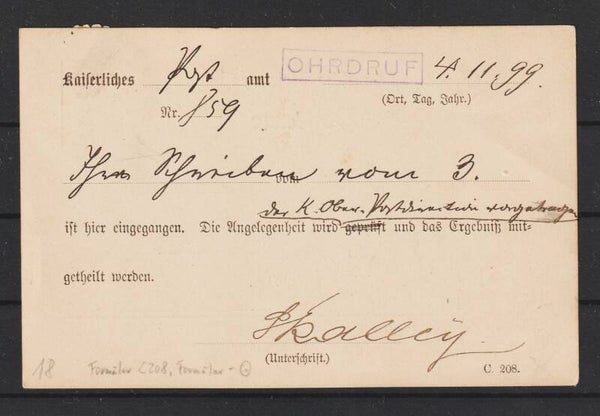 Kaiserliches Post amt OHRDRUF 4. 11. 99.
(Ort, Tag, Jahr.)
Nr. 859
Ihr Schreiben vom vom 3.
der K. Ober-Postdirection vorgetragen
ist hier eingegangen. Die Angelegenheit wird geprüft und das Ergebniß mit-
getheilt werden.
Skalley
(Unterschrift.)
C. 208.
18 Formular C208, Formular -